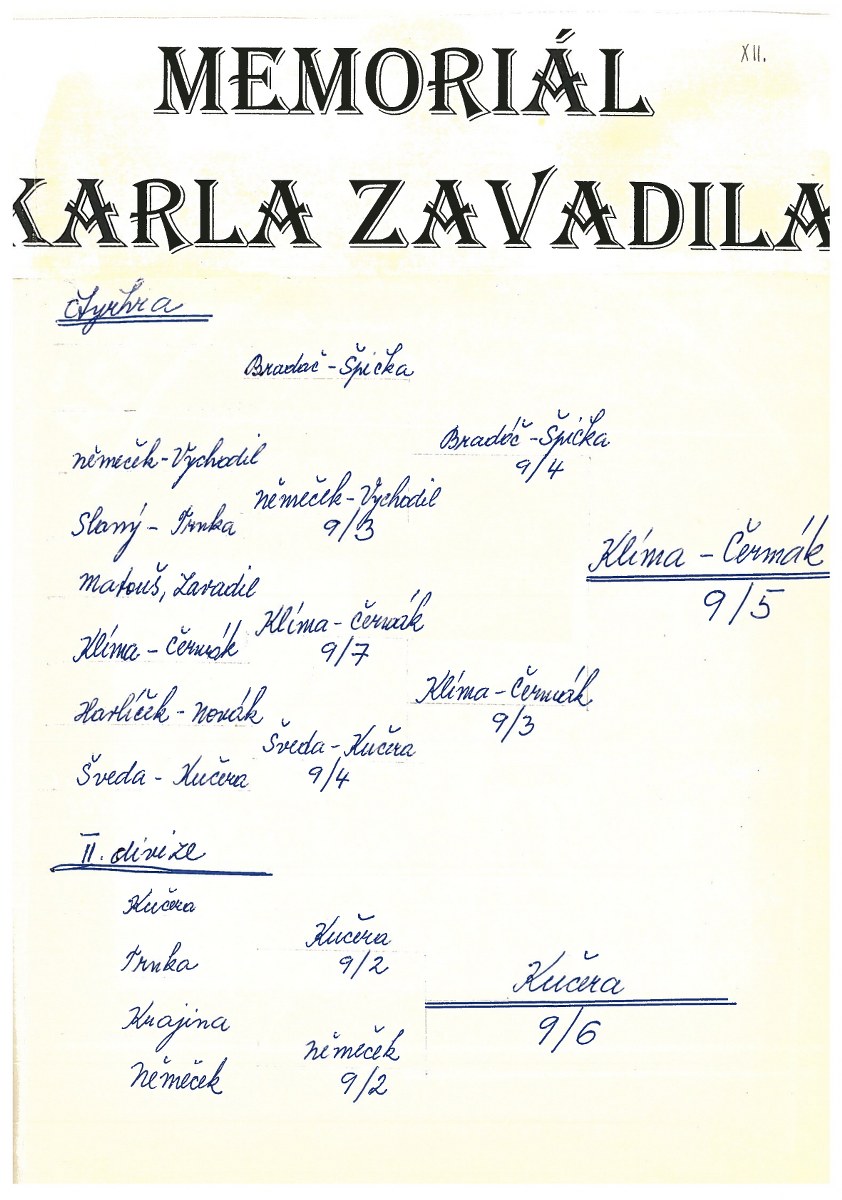 XII.
MEMORIÁL
KARLA ZAVADILA
Čtyřhra
Bradáč - Špička
Bradáč - Špička
9/4
Němeček - Vychodil
Němeček - Vychodil
9/3
Slaný - Trnka
Klíma - Čermák
9/5
Matouš, Zavadil
Klíma - Čermák
9/7
Klíma - Čermák
Klíma - Čermák
9/3
Havlíček - Novák
Šveda - Kučera
9/4
Šveda - Kučera
II. divize
Kučera
Kučera
9/2
Trnka
Kučera
9/6
Krajina
Němeček
9/2
Němeček